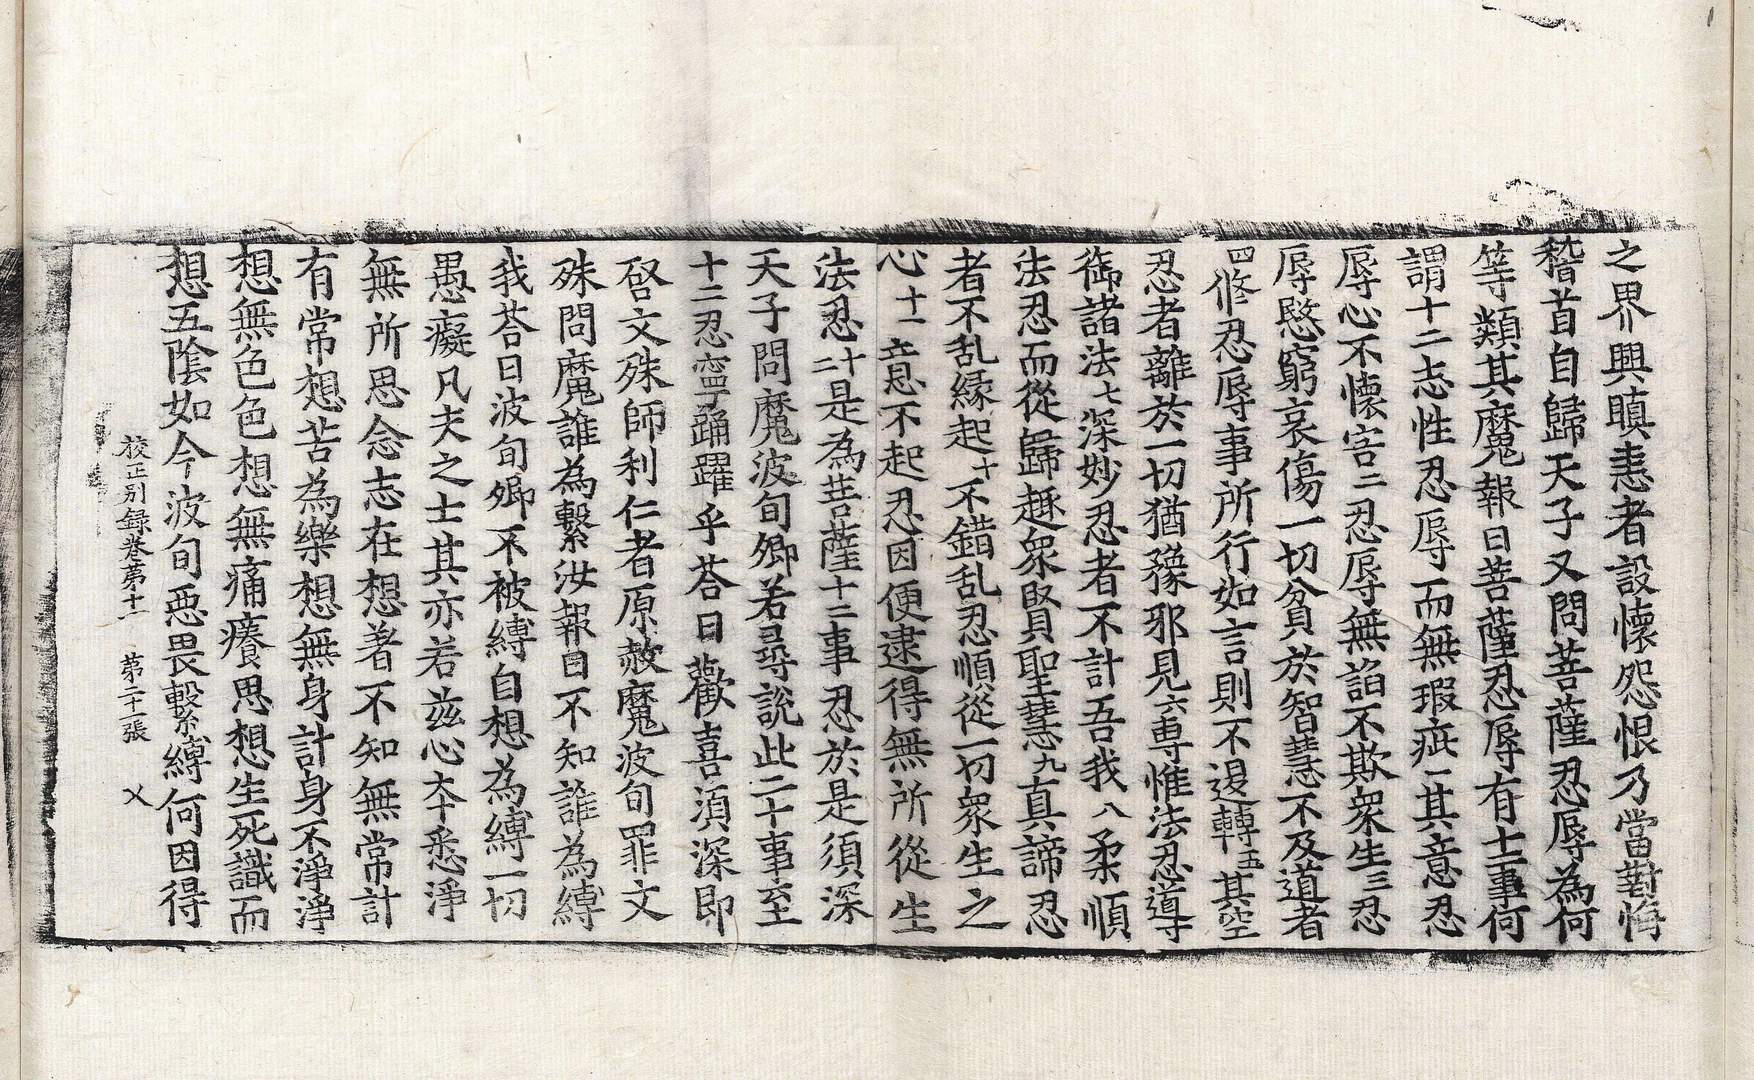 之界興瞋恚者設懷怨恨乃當對悔
稽首自歸天子又問菩薩忍辱為何
等類其魔報曰菩薩忍辱有十二事何
謂十二志性忍辱而無瑕疵一其意忍
辱心不懷害二忍辱無諂不欺衆生三忍
辱愍窮哀傷一切貧於智慧不及道者
四修忍辱事所行如言則不退轉五其空
忍者離於一切猶豫邪見六專惟法忍導
御諸法七深妙忍者不計吾我八柔順
法忍而從歸趣衆賢聖慧九真諦忍
者不乱緣起十不錯乱忍順從一切衆生之
心十一意不起忍因便逮得無所從生
法忍十二是為菩薩十二事忍於是須深
天子問魔波旬卿若尋說此二十事至
十二忍寧踊躍乎荅曰歡喜須深即
啓文殊師利仁者原赦魔波旬罪文
殊問魔誰為繫汝報曰不知誰為縛
我荅曰波旬卿不被縛自想為縛一切
愚癡凡夫之士其亦若茲心本悉淨
無所思念志在想著不知無常計
有常想苦為樂想無身計身不淨淨
想無色色想無痛癢思想生死識而
想五陰如今波旬惡畏繫縛何因得
校正別録卷第十一 第二十一張 㐅